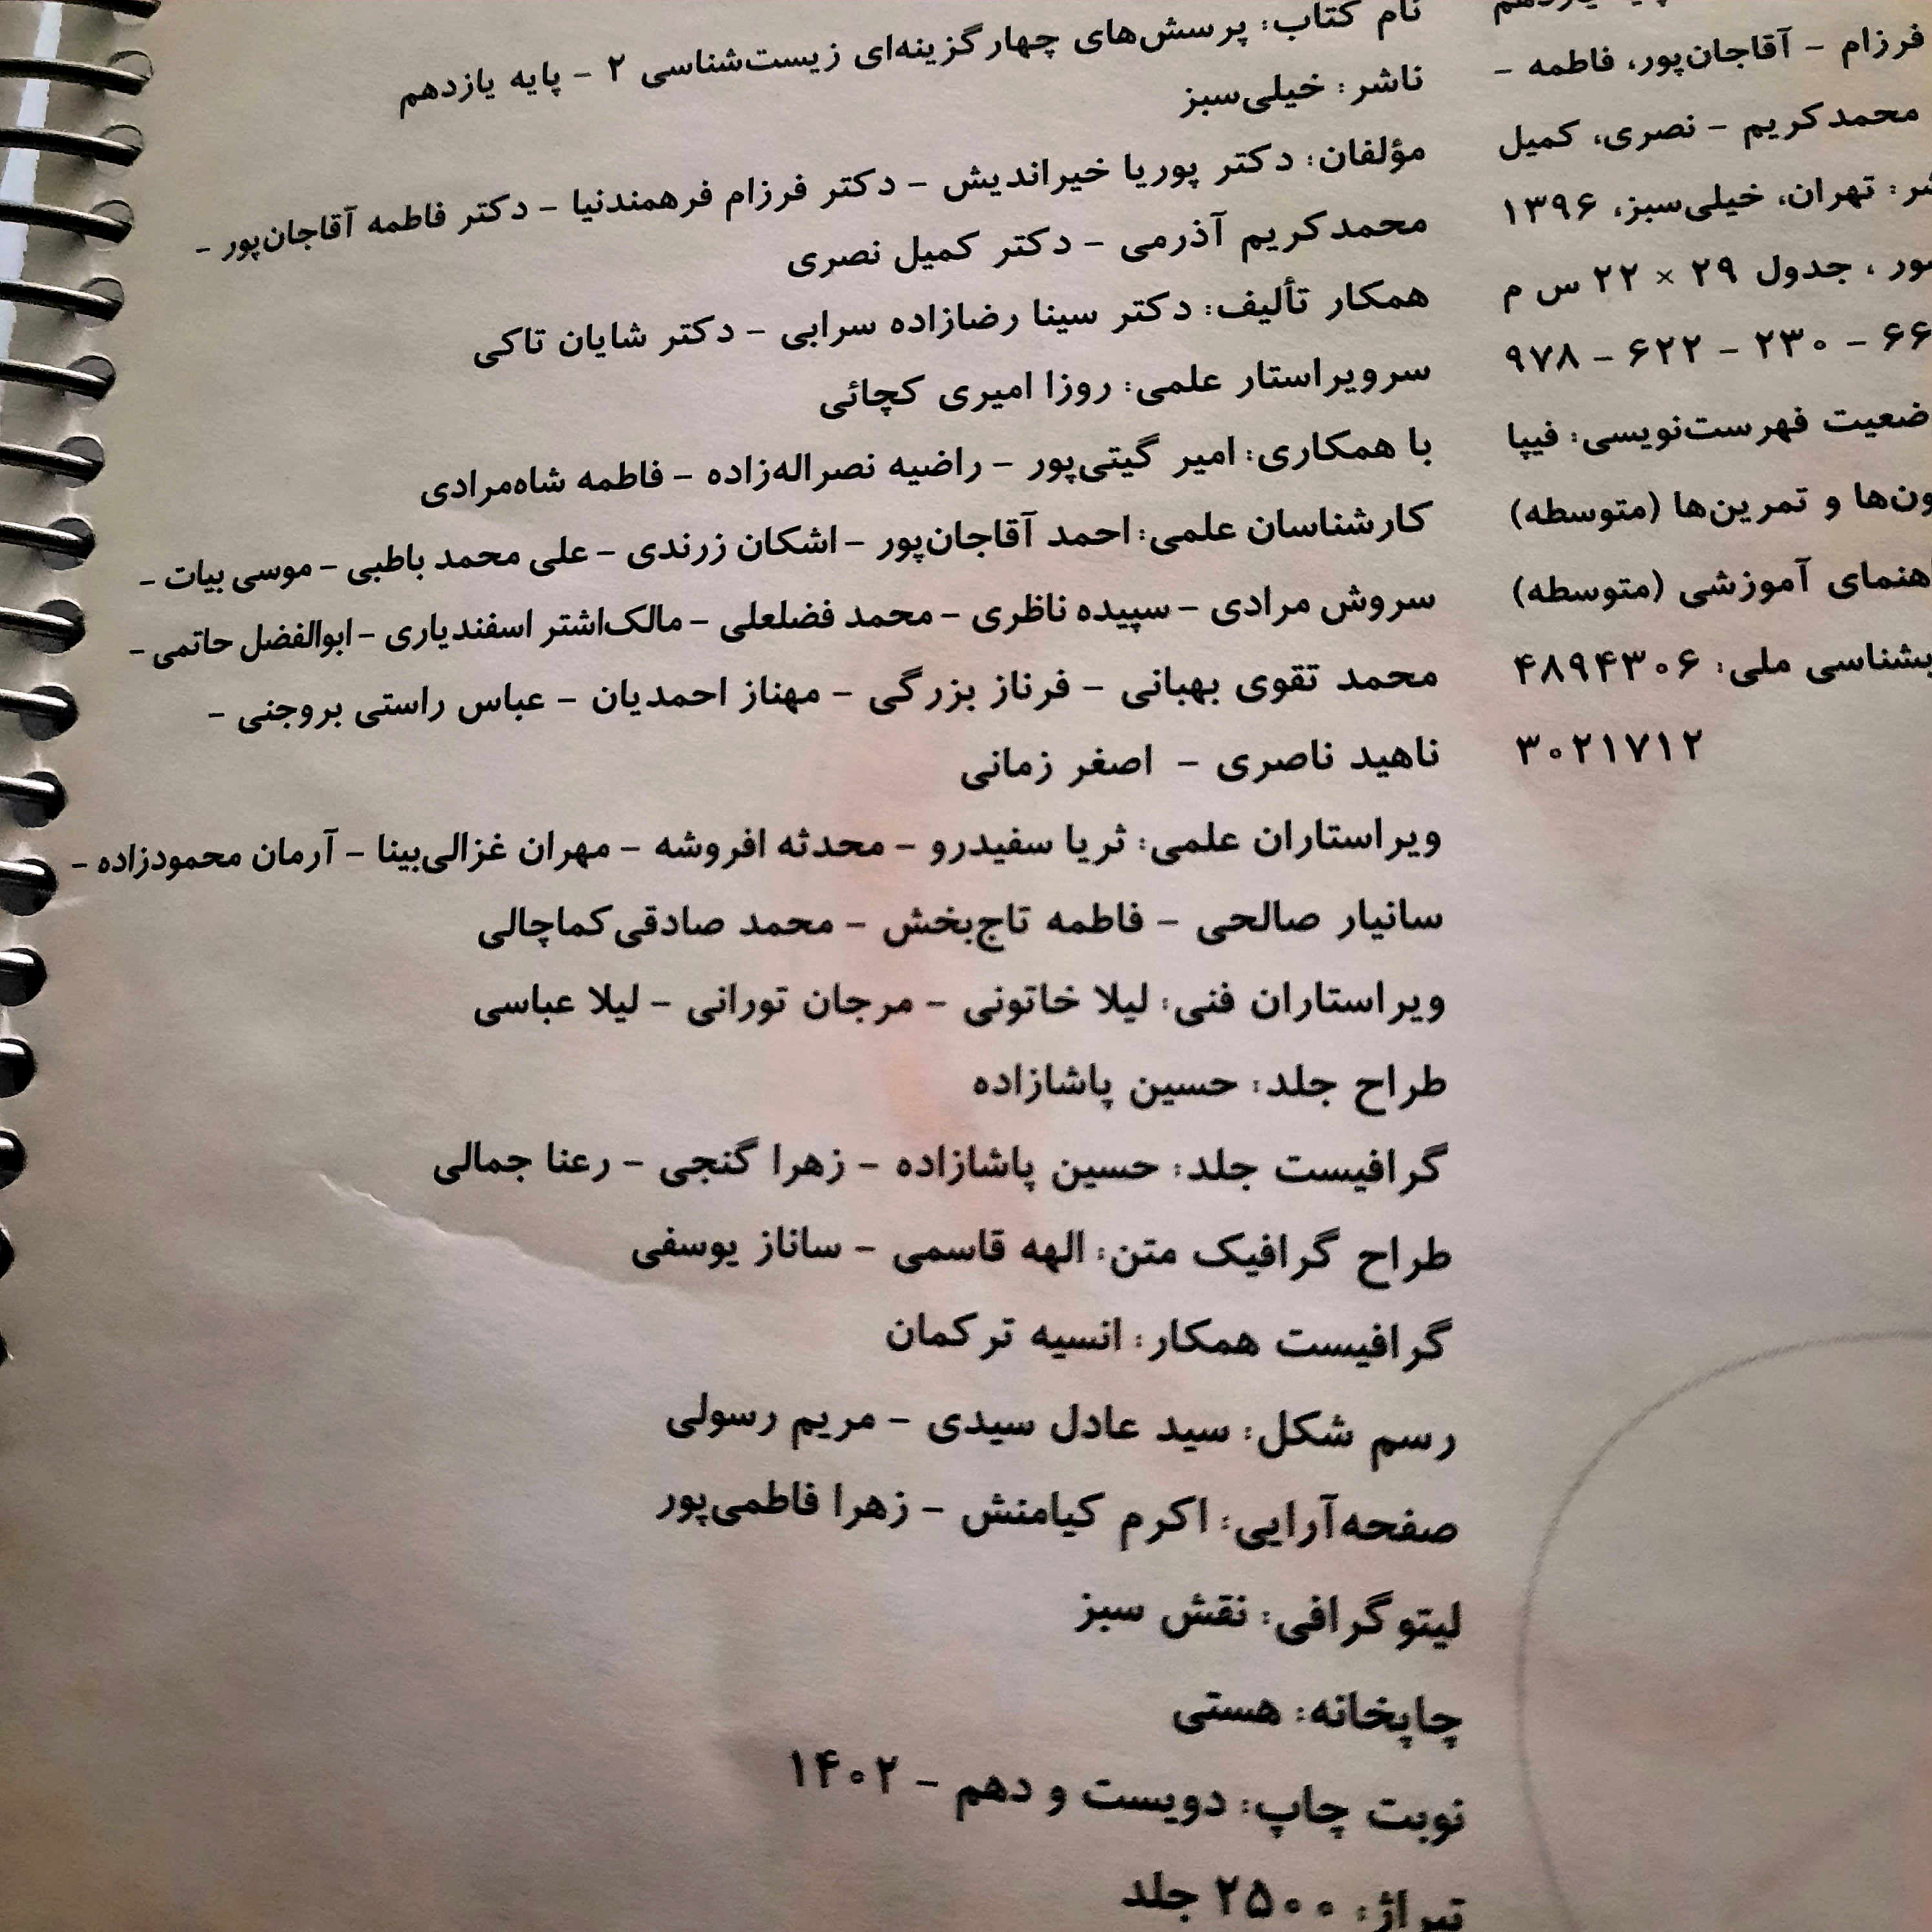 نام کتاب: پرسش‌های چهارگزینه‌ای زیست‌شناسی ۲ - پایه یازدهم
ناشر: خیلی‌سبز
مؤلفان: دکتر پوریا خیراندیش - دکتر فرزام فرهمندنیا - دکتر فاطمه آقاجان‌پور -
محمدکریم آذرمی - دکتر کمیل نصری
همکار تألیف: دکتر سینا رضازاده سرابی - دکتر شایان تاکی
سرویراستار علمی: روزا امیری کچائی
با همکاری: امیر گیتی‌پور - راضیه نصراله‌زاده - فاطمه شاه‌مرادی
کارشناسان علمی: احمد آقاجان‌پور - اشکان زرندی - علی محمد باطبی - موسی بیات -
سروش مرادی - سپیده ناظری - محمد فضلعلی - مالک‌اشتر اسفندیاری - ابوالفضل حاتمی -
محمد تقوی بهبانی - فرناز بزرگی - مهناز احمدیان - عباس راستی بروجنی -
ناهید ناصری - اصغر زمانی
ویراستاران علمی: ثریا سفیدرو - محدثه افروشه - مهران غزالی‌بینا - آرمان محمودزاده -
سانیار صالحی - فاطمه تاج‌بخش - محمد صادقی‌کماچالی
ویراستاران فنی: لیلا خاتونی - مرجان تورانی - لیلا عباسی
طراح جلد: حسین پاشازاده
گرافیست جلد: حسین پاشازاده - زهرا گنجی - رعنا جمالی
طراح گرافیک متن: الهه قاسمی - ساناز یوسفی
گرافیست همکار: انسیه ترکمان
رسم شکل: سید عادل سیدی - مریم رسولی
صفحه‌آرایی: اکرم کیامنش - زهرا فاطمی‌پور
لیتوگرافی: نقش سبز
چاپخانه: هستی
نوبت چاپ: دویست و دهم - ۱۴۰۲
تیراژ: ۲۵۰۰ جلد
فرزام - آقاجان‌پور، فاطمه -
محمدکریم - نصری، کمیل
تهران، خیلی‌سبز، ۱۳۹۶
جدول ۲۹ × ۲۲ س م
۹۷۸ - ۶۲۲ - ۲۳۰ - ۶۶
فهرست‌نویسی: فیپا
و تمرین‌ها (متوسطه)
آموزشی (متوسطه)
ملی: ۴۸۹۴۳۰۶
۳۰۲۱۷۱۲